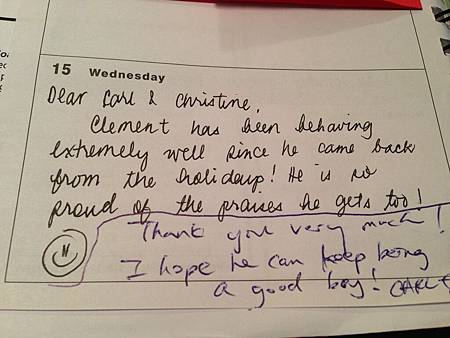 15 Wednesday
Dear Carl & Christine,
Clement has been behaving
extremely well since he came back
from the holidays! He is so
proud of the praises he gets too!
Thank you very much!
I hope he can keep being
a good boy! - CARL